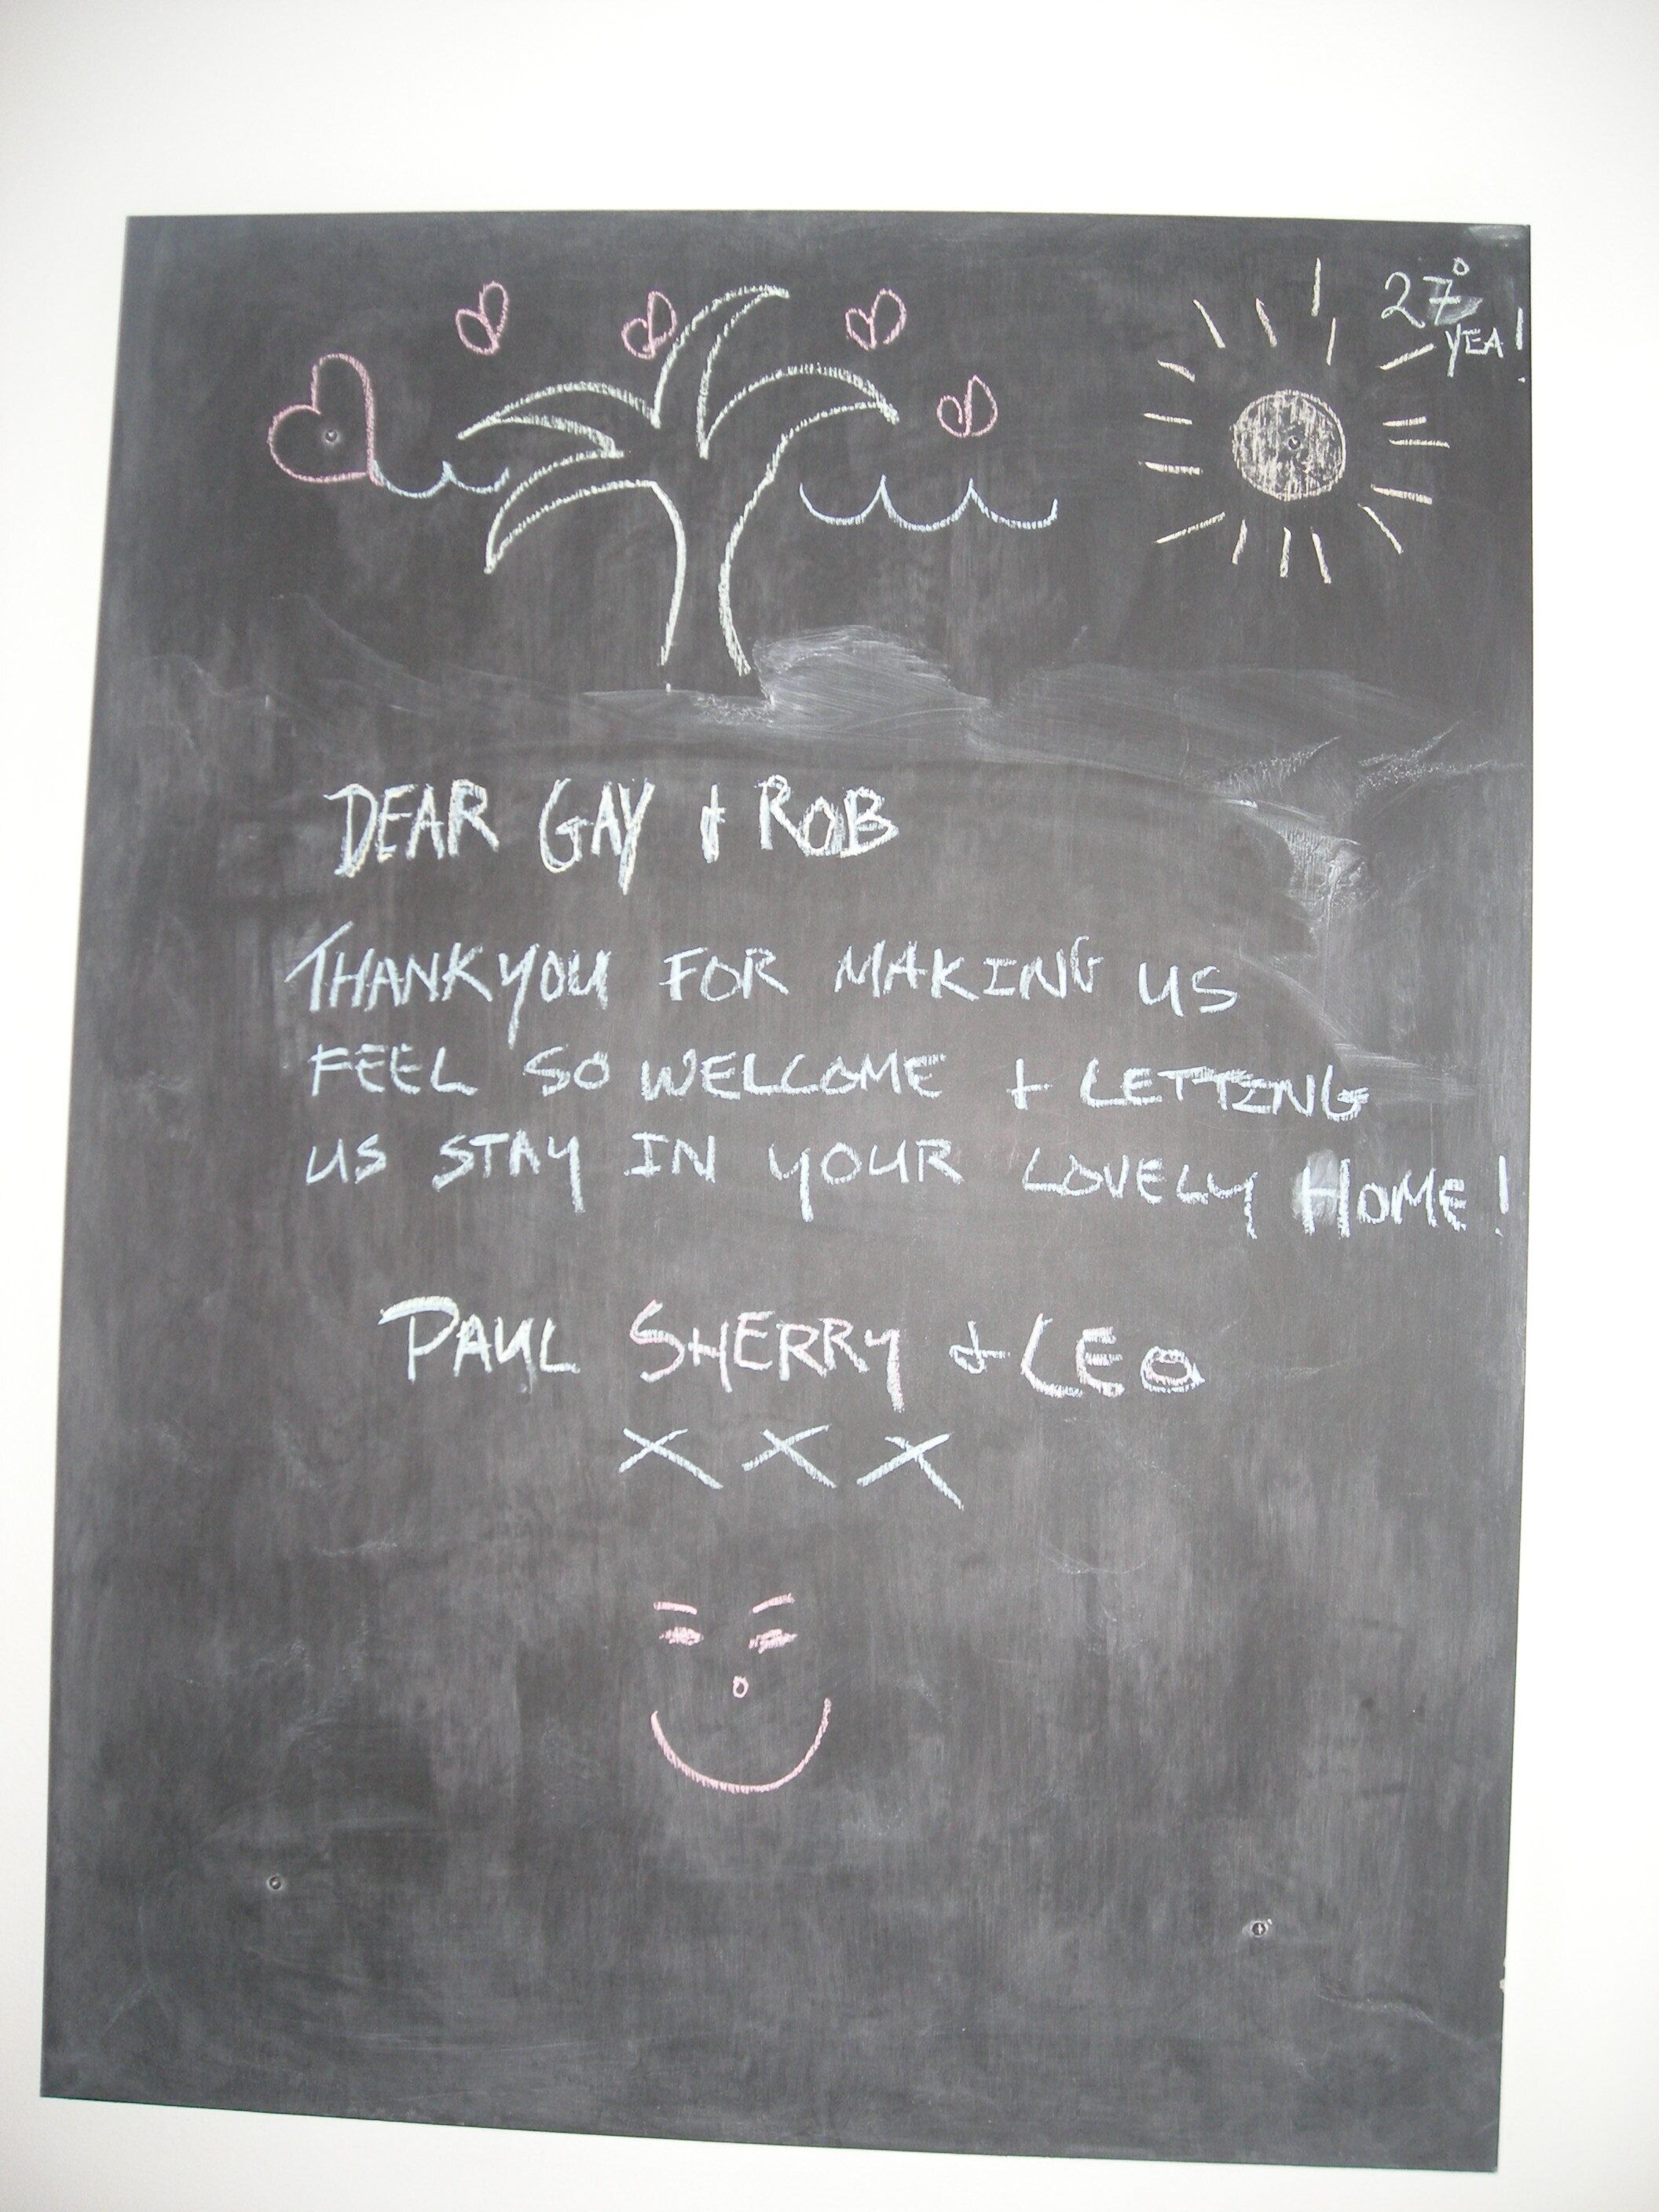 27°
YEA!
DEAR GAY + ROB
THANKYOU FOR MAKING US
FEEL SO WELCOME + LETTING
US STAY IN YOUR LOVELY HOME!
PAUL SHERRY + LEO
XXX